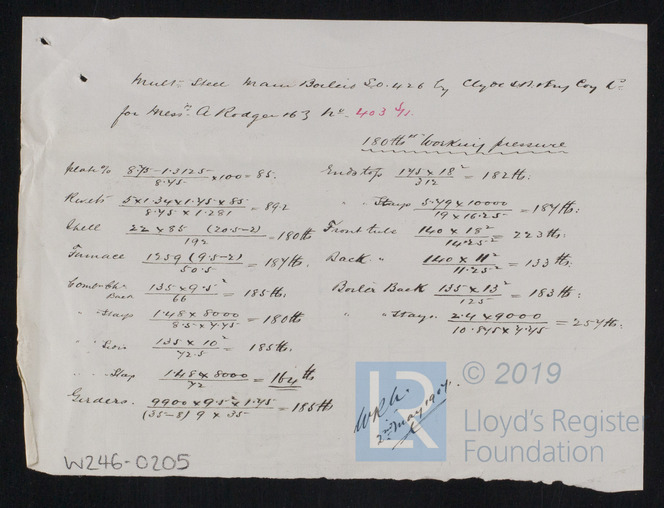 Mult. Steel Main Boilers S.O. 426 by Clyde S.B. & Eng Coy Ld
for Messrs A Rodger 163 No. 403 S/1.
180 lbs Working pressure
plate % (8.75-1.3125)/8.75 ×100 = 85.
Rivets (5×1.34×1.75×85)/(8.75×1.281) = 89.2
Shell (22×85 (20.5-2))/192 = 180 lbs
Furnace (1259 (9.5-2))/50.5 = 187 lbs.
Comb. Ch. Back (135×9.5²)/66 = 185 lbs.
" Stays (1.48×8000)/(8.5×7.75) = 180 lbs
" Sides (135×10²)/72.5 = 185 lbs.
" Stay (1.48×8000)/72 = 164 lbs
Girders. (9900×9.5²×1.75)/((35-8) 9×35) = 185 lbs
Ends top (175×18²)/312 = 182 lbs.
" Stays (5.79×10000)/(19×16.25) = 187 lbs.
Front tube (140×18²)/14.25² = 223 lbs.
Back " (140×11²)/11.25² = 133 lbs.
Boiler Back (135×13²)/125 = 183 lbs.
" " Stays. (2.4×9000)/(10.875×7.75) = 257 lbs.
2nd May 1907.
W246-0205
LR
© 2019
Lloyd's Register
Foundation